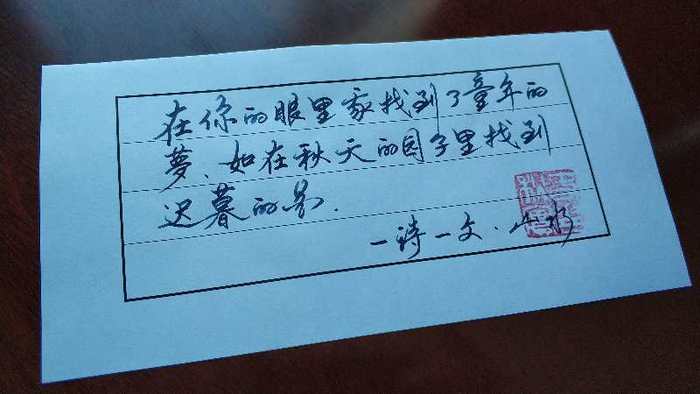 在你的眼里家找到了童年的
夢、如在秋天的园子里找到
迟暮的景.
一诗一文·山水